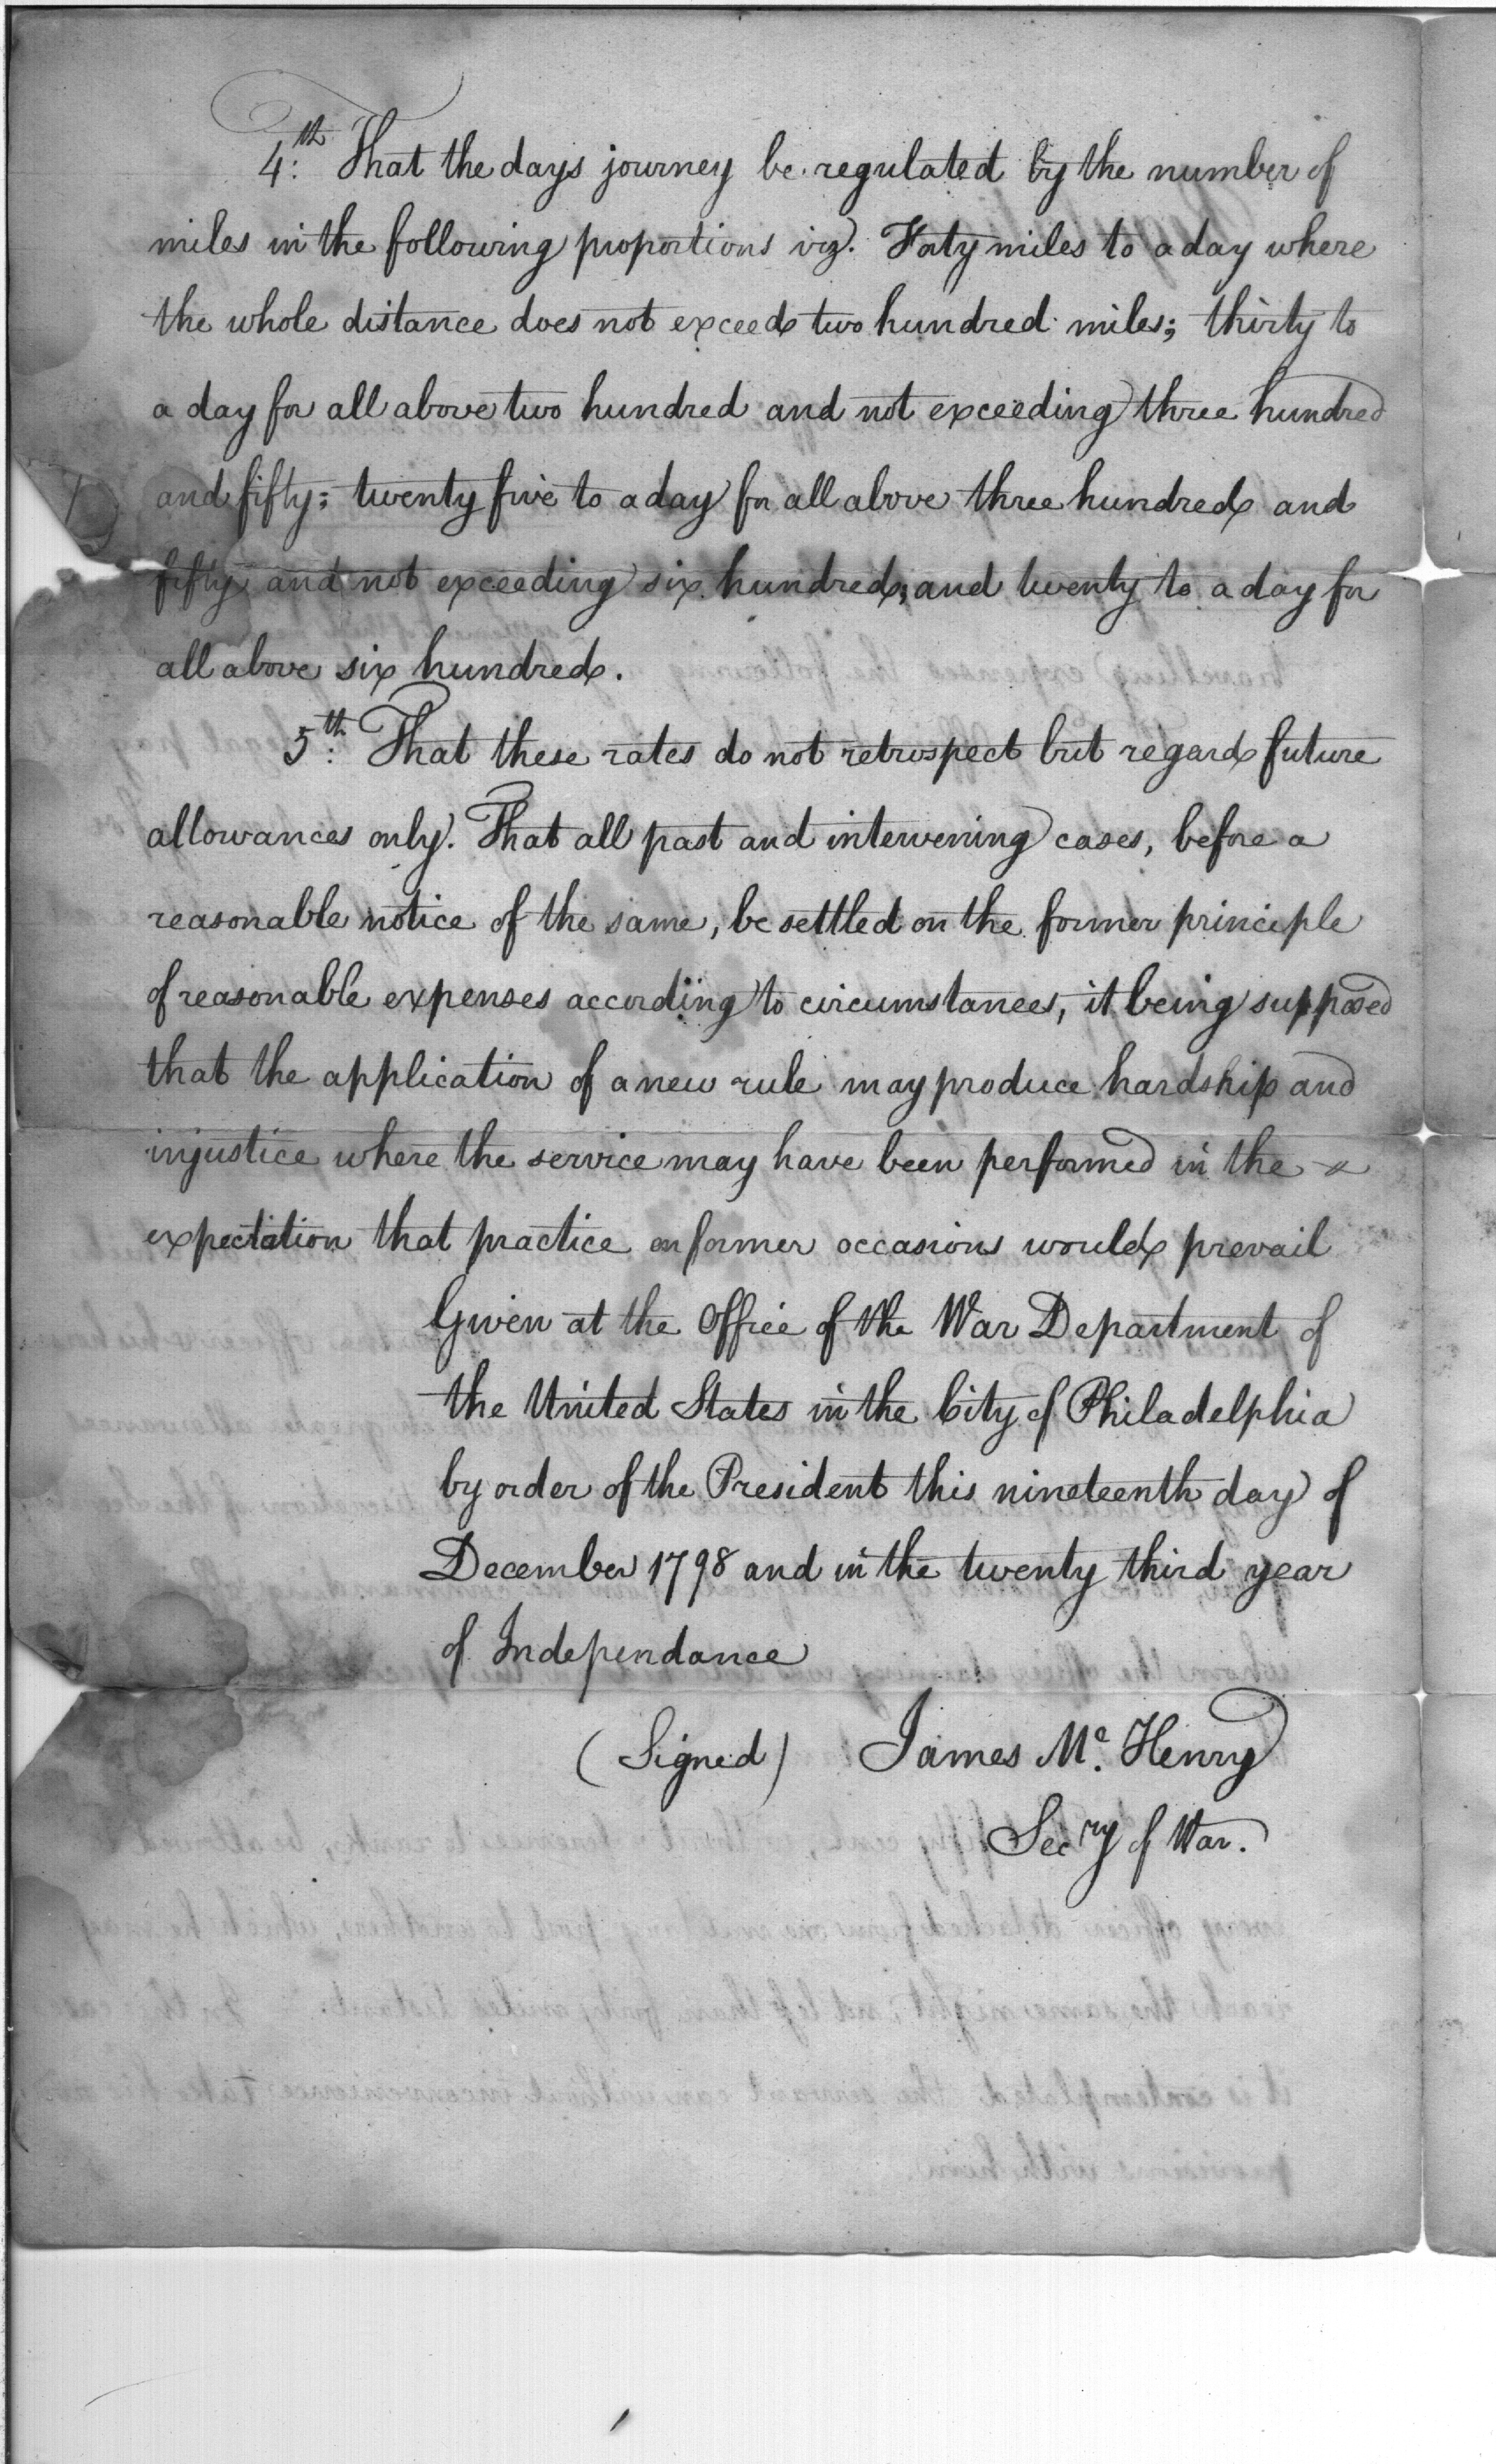 4:th That the days journey be regulated by the number of
miles in the following proportions viz. Forty miles to a day where
the whole distance does not exceed two hundred miles; thirty to
a day for all above two hundred and not exceeding three hundred
and fifty; twenty five to a day for all above three hundred and
fifty and not exceeding six hundred; and twenty to a day for
all above six hundred.
5th: That these rates do not retrospect but regard future
allowances only. That all past and intervening cases, before a
reasonable notice of the same, be settled on the former principle
of reasonable expenses according to circumstances, it being supposed
that the application of a new rule may produce hardship and
injustice where the service may have been performed in the
expectation that practice on former occasions would prevail
Given at the Office of the War Department of
the United States in the City of Philadelphia
by order of the President this nineteenth day of
December 1798 and in the twenty third year
of Independance
(Signed) James Mc. Henry
Secry of War.